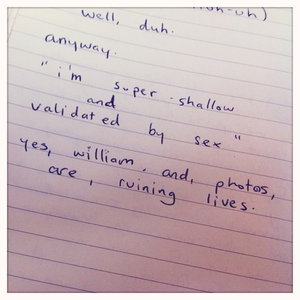 well, duh.
anyway.
"i'm super shallow
and
validated by sex"
yes, william, and, photos,
are, ruining lives.